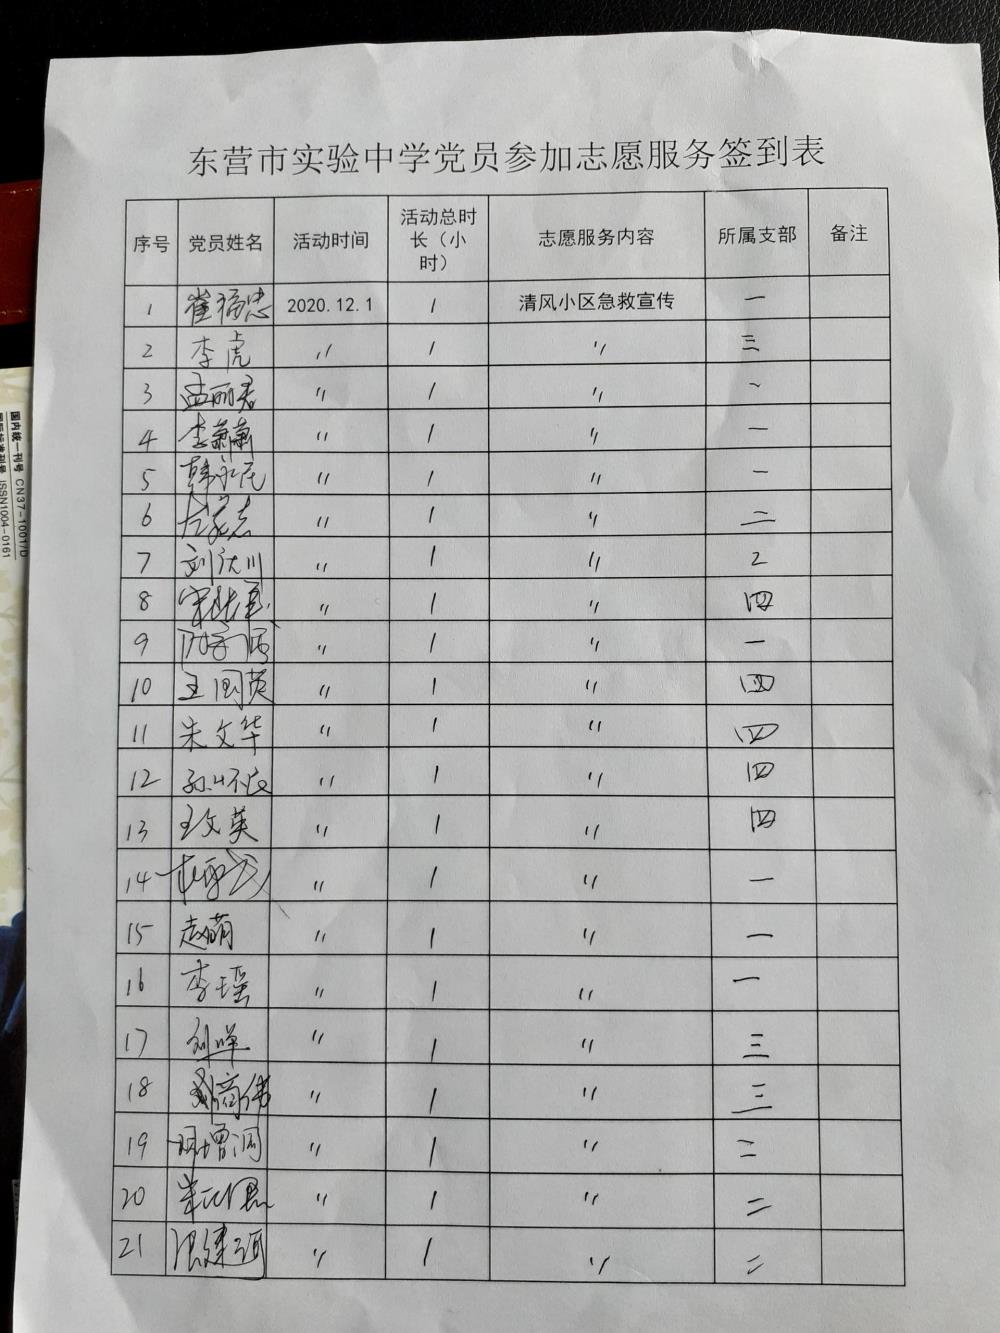 东营市实验中学党员参加志愿服务签到表
序号 党员姓名 活动时间 活动总时长（小时） 志愿服务内容 所属支部 备注
1 崔福忠 2020.12.1 1 清风小区急救宣传 一
2 李虎 〃 1 〃 三
3 孟丽君 〃 1 〃 一
4 李萧萧 〃 1 〃 一
5 韩永民 〃 1 〃 一
6 〃 1 〃 二
7 刘汉川 〃 1 〃 2
8 〃 1 〃 四
9 〃 1 〃 一
10 王国英 〃 1 〃 四
11 朱文华 〃 1 〃 四
12 〃 1 〃 四
13 王文英 〃 1 〃 四
14 〃 1 〃 一
15 赵萌 〃 1 〃 一
16 李瑶 〃 1 〃 一
17 刘晔 〃 1 〃 三
18 〃 1 〃 三
19 〃 1 〃 二
20 〃 1 〃 二
21 〃 1 〃 二
国内统一刊号 CN37-1001/D
国际标准刊号 ISSN1004-0161